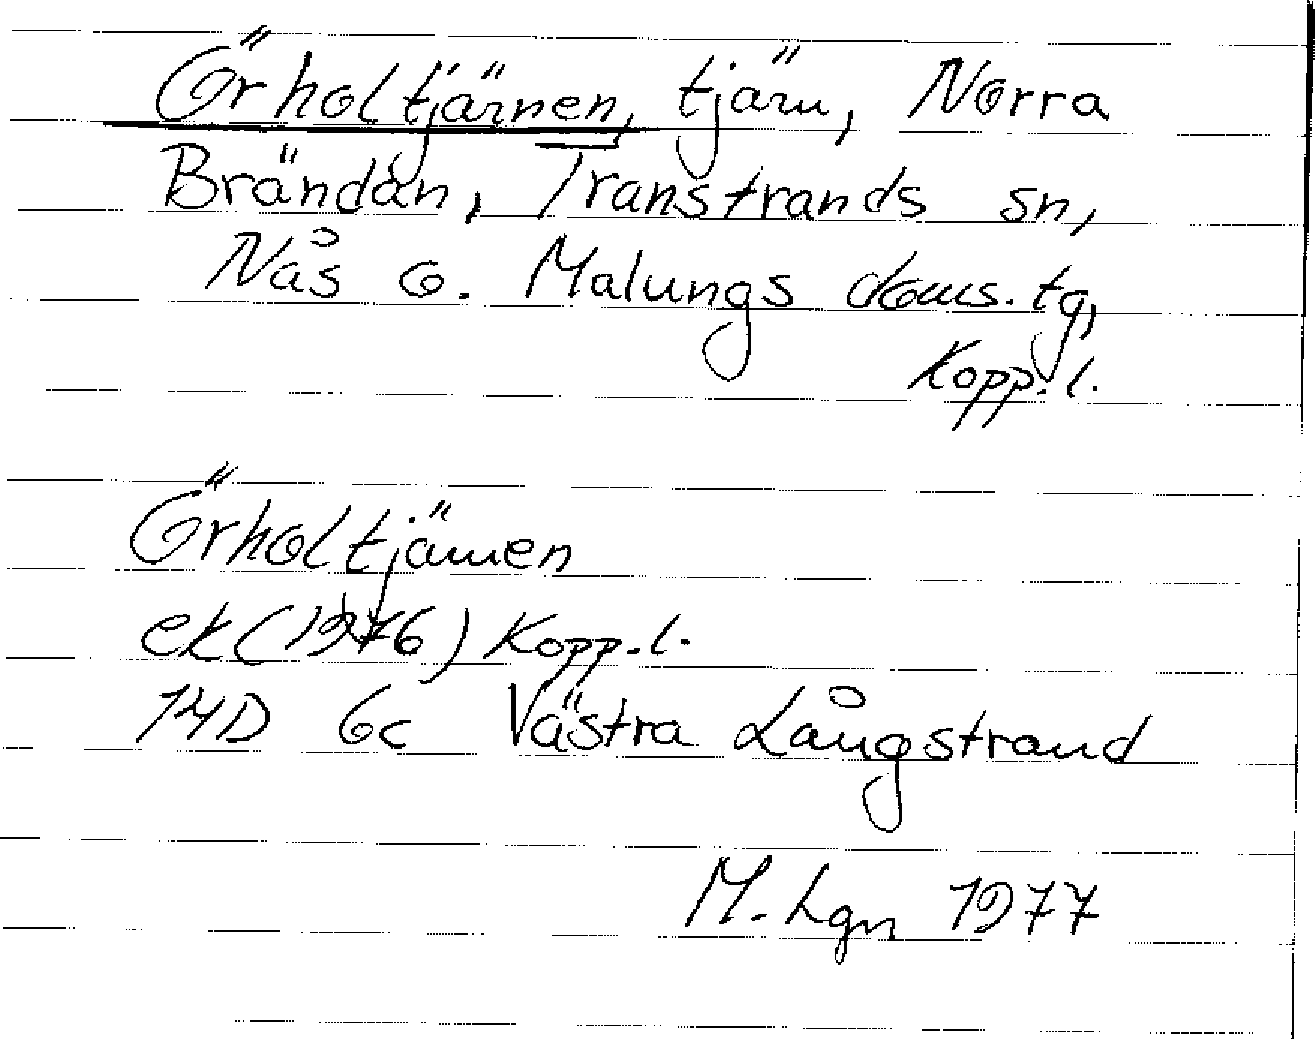 Örholtjärnen, tjärn, Norra
Brändan, Transtrands sn,
Nås o. Malungs doms.tg,
Kopp.l.
Örholtjärnen
ek(1976) Kopp.l.
14D 6c Västra Långstrand
M. Lgn 1977